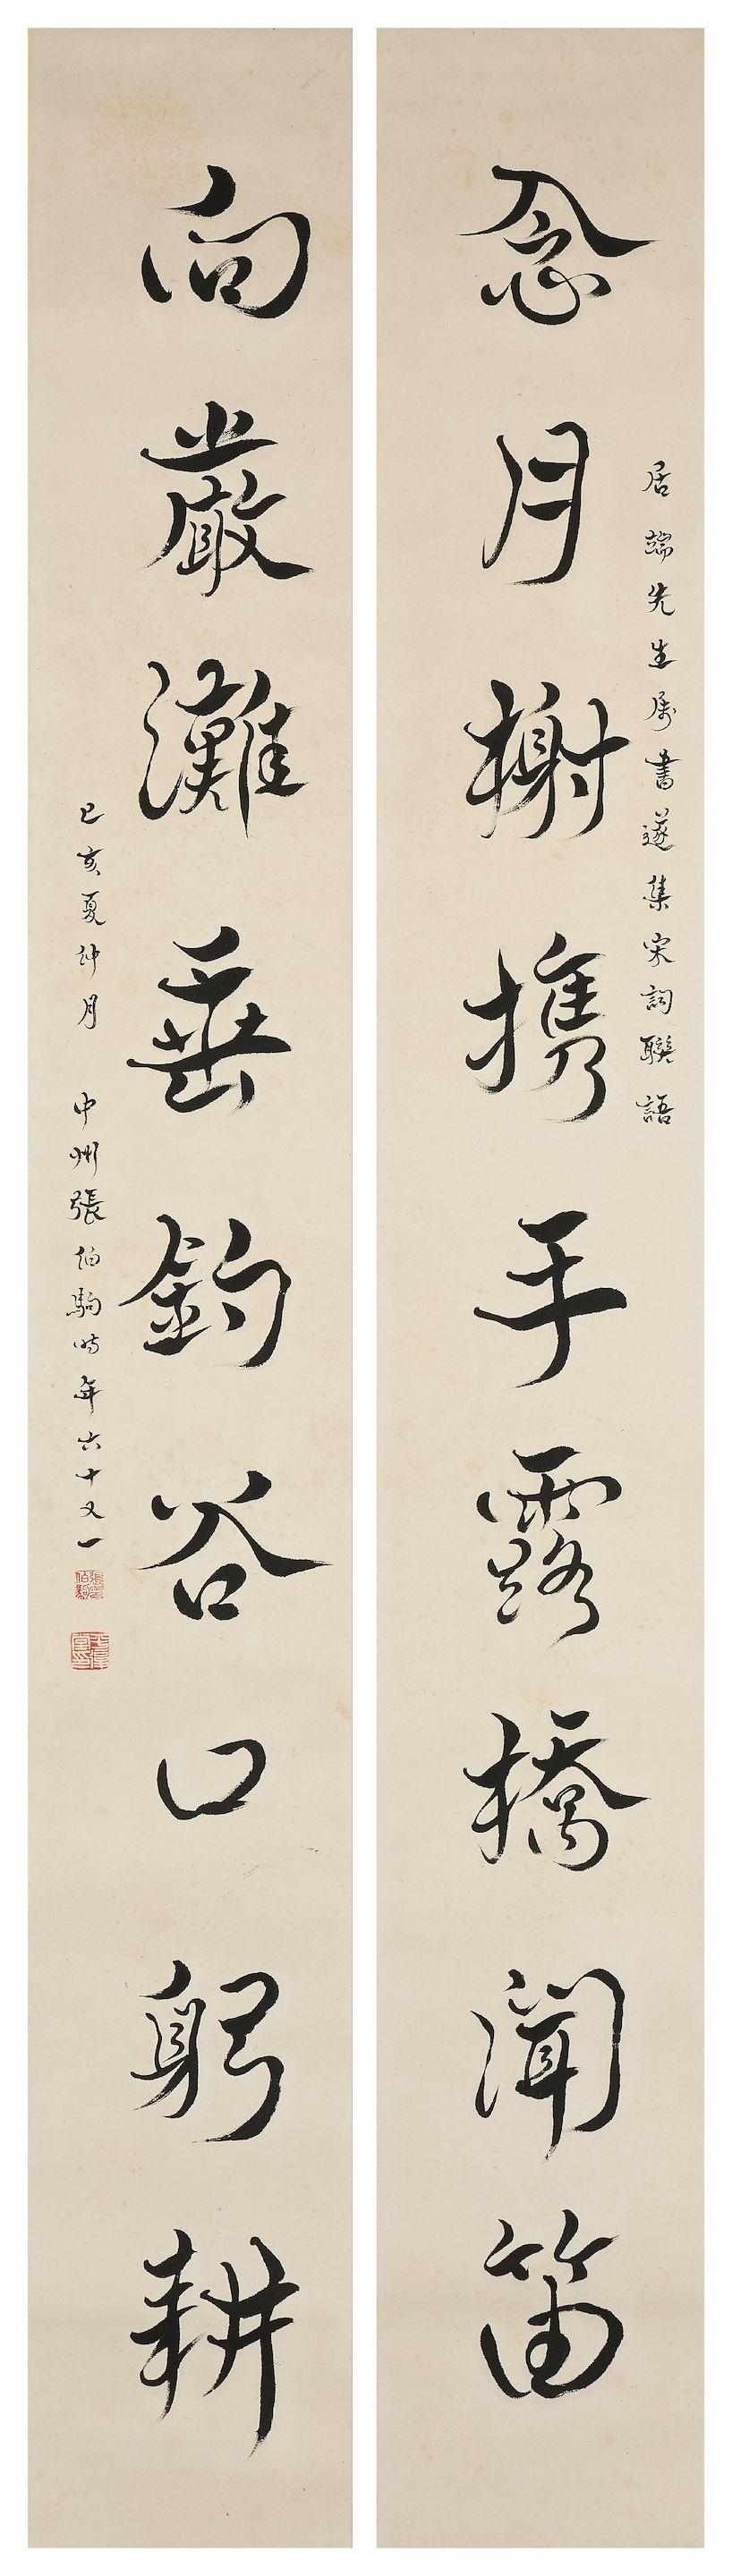 念月榭携手露橋聞笛
居端先生屬書遂集宋詞聯語
向嚴灘垂釣谷口躬耕
己亥夏仲月 中州張伯駒時年六十又一
張伯駒